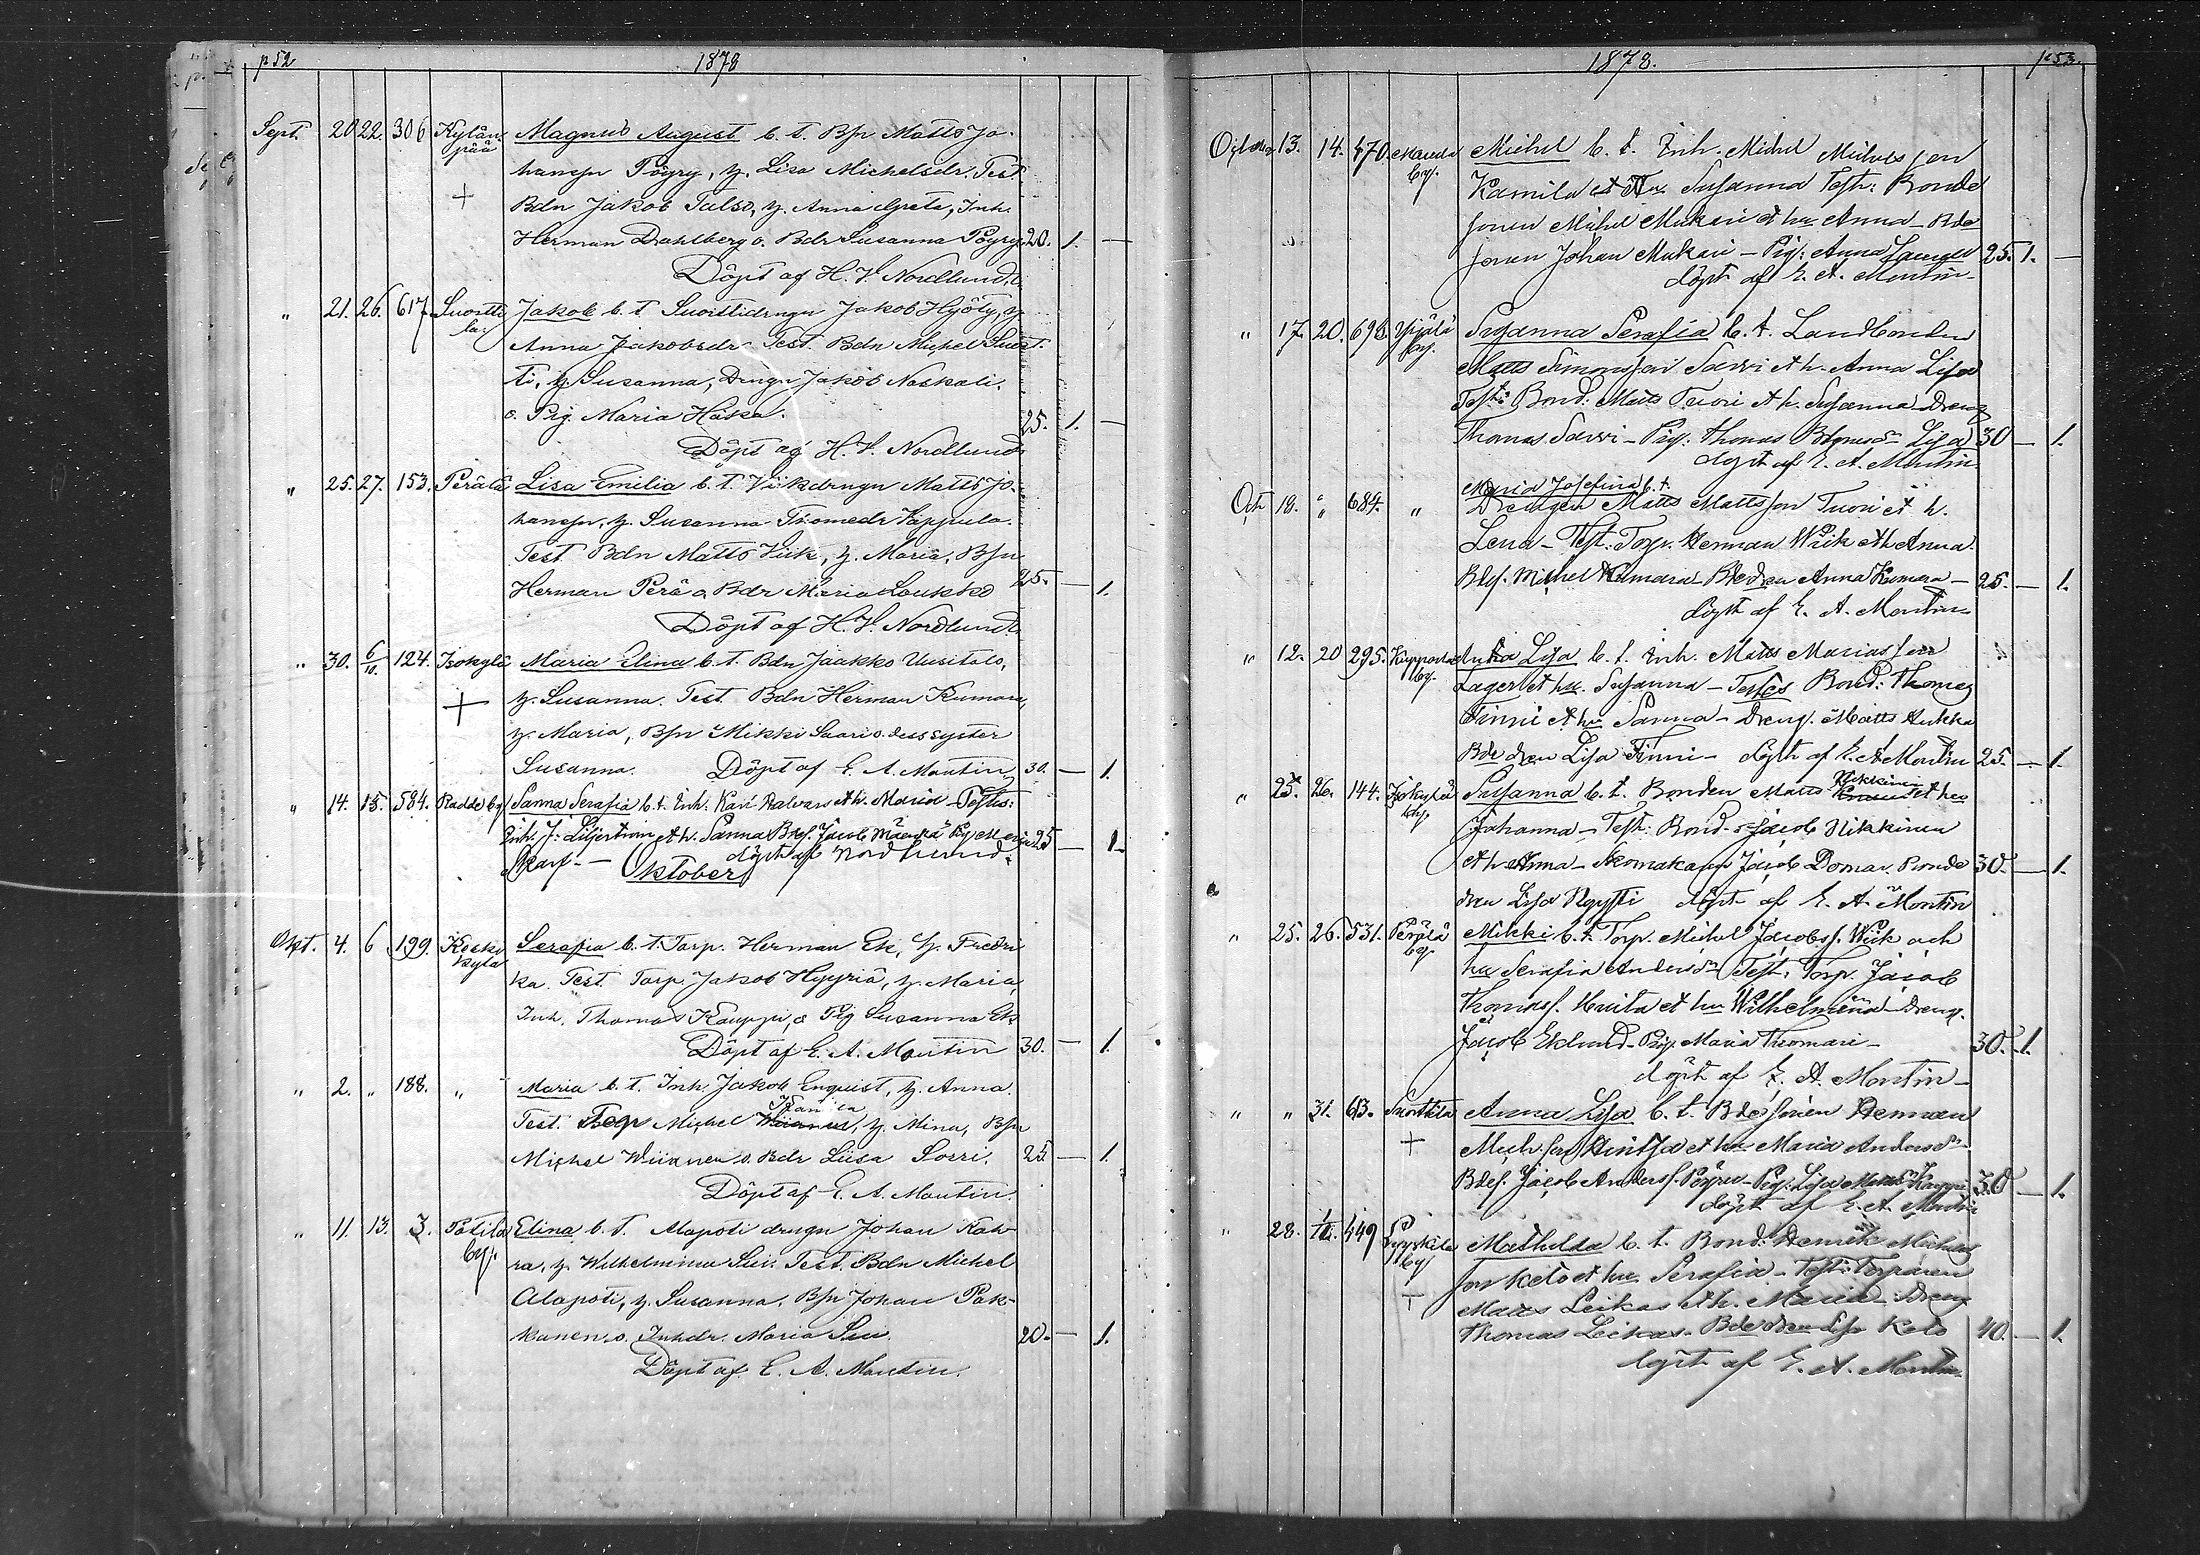 p 52 1878
Sept. 20. 22. 306 Kylän- Magnus August b. t. Bsn Matts Jo-
pää hanssn Pöyry, h. Lisa Michelsdr. Test.
+ Bdn Jakob Talso, h. Anna Greta, Inh.
Herman Dahlberg o. Bdr Susanna Pöyry. 20. 1. —
Döpt af H. V. Nordlund.
" 21. 26. 617. Suortti Jakob b. t. Suorttidrngn Jakob Hyöty, h.
la. Anna Jakobsdr Test. Bdn Michel Suort-
ti, h. Susanna, Drngn Jakob Naskali,
o. Pig. Maria Haka. 25. 1. —
Döpt af H. V. Nordlund
" 25. 27. 153. Perälä Lisa Emilia b. t. Viikdrngn Matts Jo-
hanssn, h. Susanna Thomedr Vappula.
Test. Bdn Matts Viik, h. Maria, Bsn
Herman Perä o. Bdr Maria Loukko 25. — 1.
Döpt af H. V. Nordlund.
" 30. 6/10. 124. Isokylä Maria Elina b. t. Bdn Jaakko Uusitalo,
+ h. Susanna. Test. Bdn Herman Kumara,
h. Maria, Bsn Mikki Saari o. dess syster
Susanna. Döpt af E. A. Montin 30. — 1.
" 14. 15. 584. Radde by Sanna Serafia b. t. Inh. Karl h. Maria - Testes:
Inh. J. Liljeström et h. Sanna Bdes. Jacob Pig Maria 25 — 1
döpt af Nordlund.
Oktober
Okt. 4. 6 199. Keski Serafia b. t. Torp. Herman Ek, h. Fredri-
kylä ka. Test. Torp. Jakob Hyyriä, h. Maria,
Inh. Thomas Kauppi, o Pig Susanna Ek.
Döpt af E. A. Montin 30. — 1.
" 2. " 188. " Maria b. t. Inh. Jakob Enquist, h. Anna.
Test. Torp Michel h. Mina, Bsn
Michel Wiianen o. Bdr Liisa Sorri. 25 — 1.
Döpt af E. A. Montin.
" 11. 13. 3. Potila Elina b. t. Alapoti drngn Johan Kah-
by. ra, h. Wilhelmina Test. Bdn Michel
Alapoti, h. Susanna, Bsn Johan Pak-
kanen o. Inhdr. Maria 20. — 1.
Döpt af E. A. Montin.
1878. p 53.
13. 14. 470. Michel b. t. Inh. Michel Michelsson
by. Kamila et hu Susanna Test: Bonde
sonen Michel Mukari et hu Anna - Bde
sonen Johan Mukari - Pig: Anna 25. 1. —
döpt af E. A. Montin
" 17. 20. 696 Ypjälä Susanna Serafia b. t. Landbonden
by. Matts Simonsson Sorri et h. Anna Lisa
Test: Bond: Matts Tuori et h. Susanna Dreng
Thomas Sorri - Pig: Lisa 30 — 1.
döpt af E. A. Montin
Maria Josefina b. t.
Okt 18. " 684. " Drengen Matts Mattsson Tuori et h.
Lena - Test. Torp. Herman Wiik et h Anna.
Bdes. Michel Kumara - Bdedren Anna Kumara - 25. — 1.
döpt af E. A. Montin
" 12. 20 295. by. Lisa b. t. Inh. Matts
Lager et hu. Susanna - Testes Bond: Thomas
Finni et hu Sanna - Dreng. Matts Ankka
Bde dren Lisa Finni - döpt af E. A. Montin 25. — 1.
" 25. 26. 144. Isokylä Susanna b. t. Bonden Matts Nikkinen et hu
by. Johanna - Test: Bond. Jacob Nikkinen
et h Anna - Skomakaren Jacob Domar. Bonde 30. — 1.
dren Lisa döpt af E. A. Montin
" 25. 26. 531. Perälä Mikki b. t. Torp. Michel Jacobss. Wiik och
by. hu Serafia Andersdr Test: Torp. Jacob
Thomass. et hu Wilhelmina - Dreng.
Jacob Eklund - Pig. Maria Thomari - 30. — 1.
döpt af E. A. Montin
" " 31. 613. Suorttila Anna Lisa b. t. Bdesonen Herman
+ Mich.son Hintsa et hu Maria Andersdr -
Bdes. Jacob Anderss. - Pig. Lisa 30 — 1.
döpt af E. A. Montin
" 28. 1/11. 449 Mathilda b. t. Bond: Henrik Michels
by son Keto et hu Serafia - Test: Torparen
+ Matts Leikas et h. Maria - Dreng
Thomas Leikas - Bde dren Lisa Keto 40. — 1.
döpt af E. A. Montin